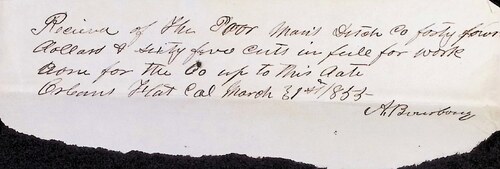 Recieved of the Poor Man's Ditch Co forty four
dollars & sixty five cents in full for work
done for the Co up to this date
Orleans Flat Cal March 31st 1855
A. Bourbong